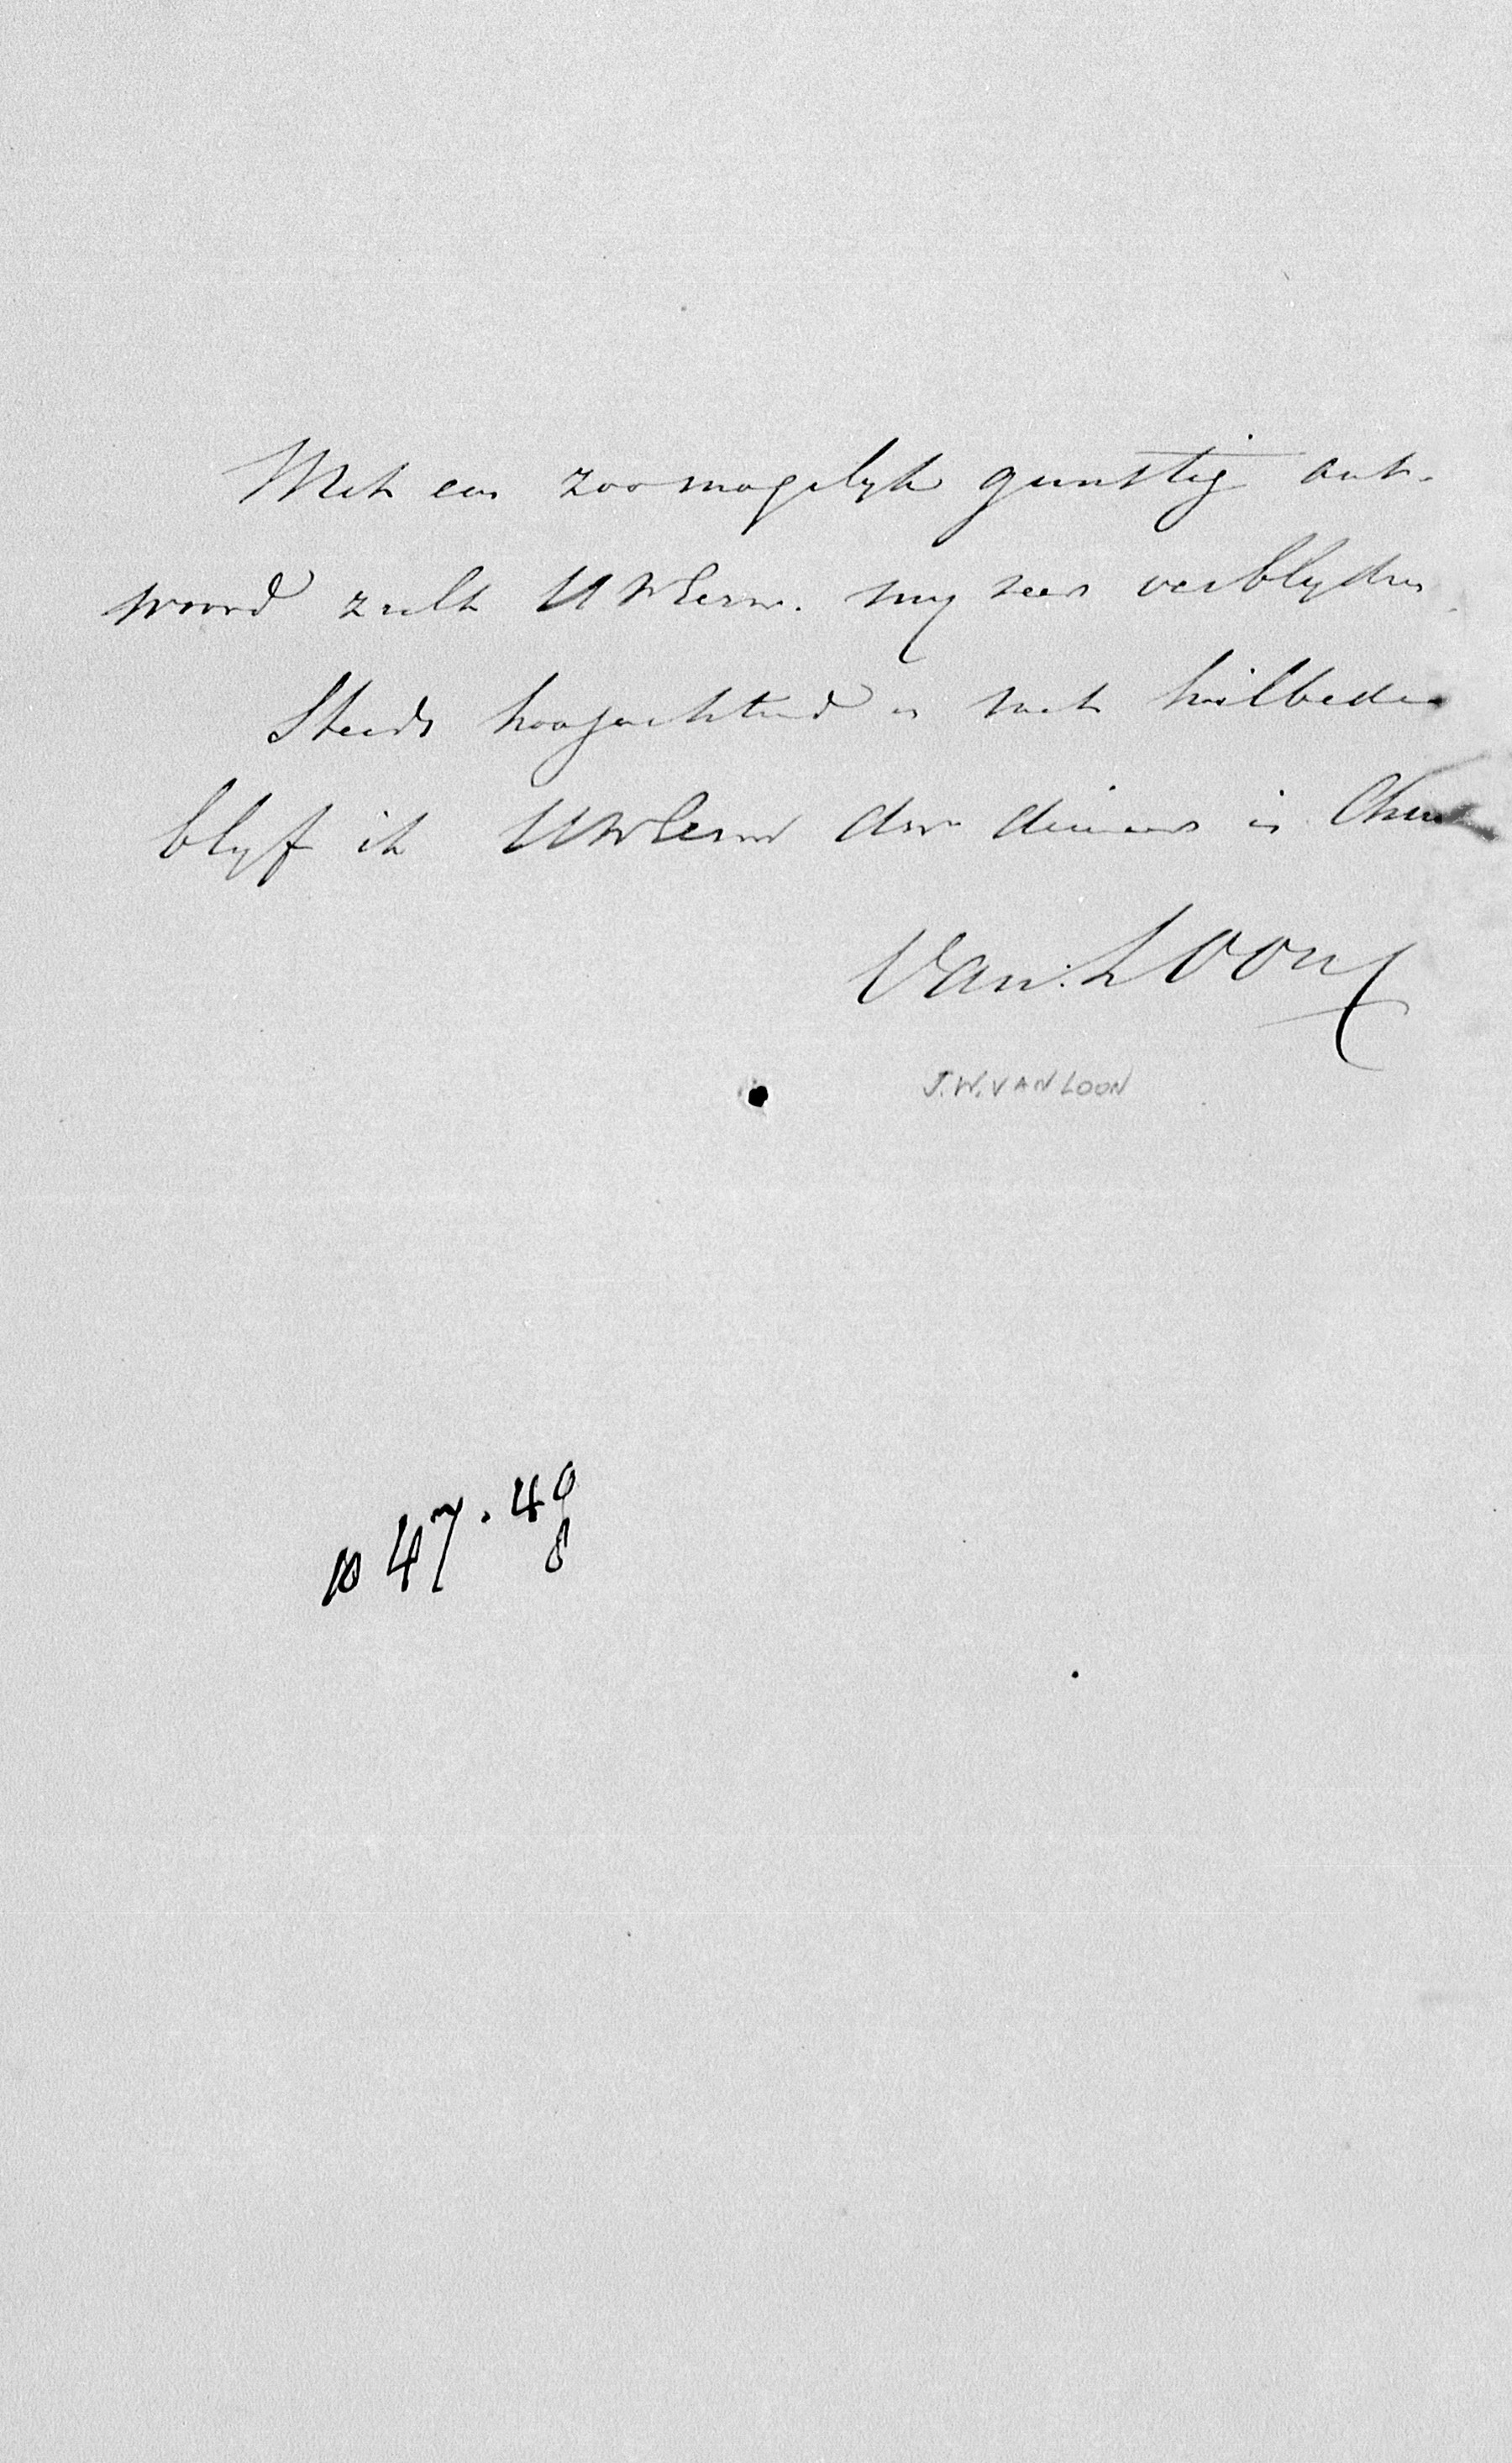 Met een zoo mogelyk gunstig ant-
woord zult UWEerw. my zeer verblyden
Steeds hoogachtend en met heilbede
blyf ik UWEerw dw dienaar in Chr
Van Loon
J.W. VAN LOON
10 47.40
8